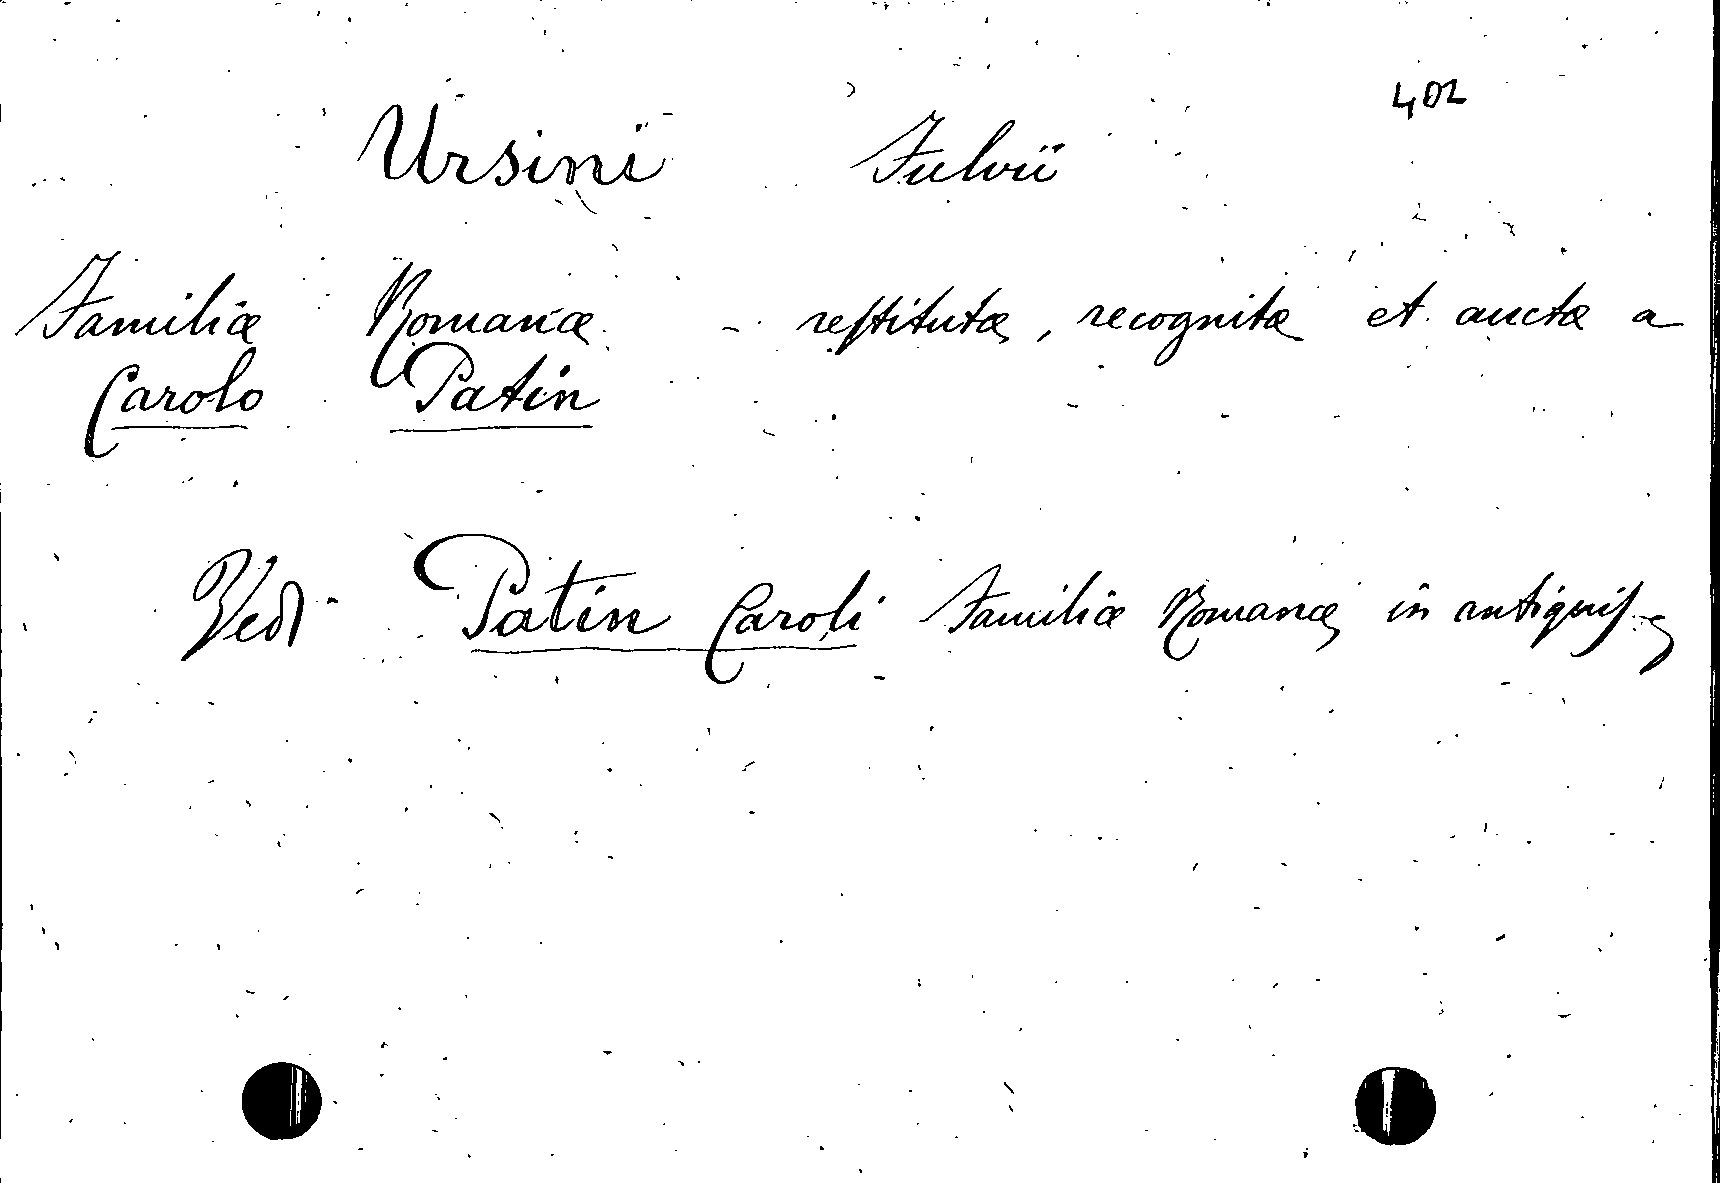 402
Ursini Fulvii
Familiæ Romanæ - restitutæ, recognitæ et auctæ a
Carolo Patin
Vedi Patin Caroli Familiæ Romanæ in antiquis